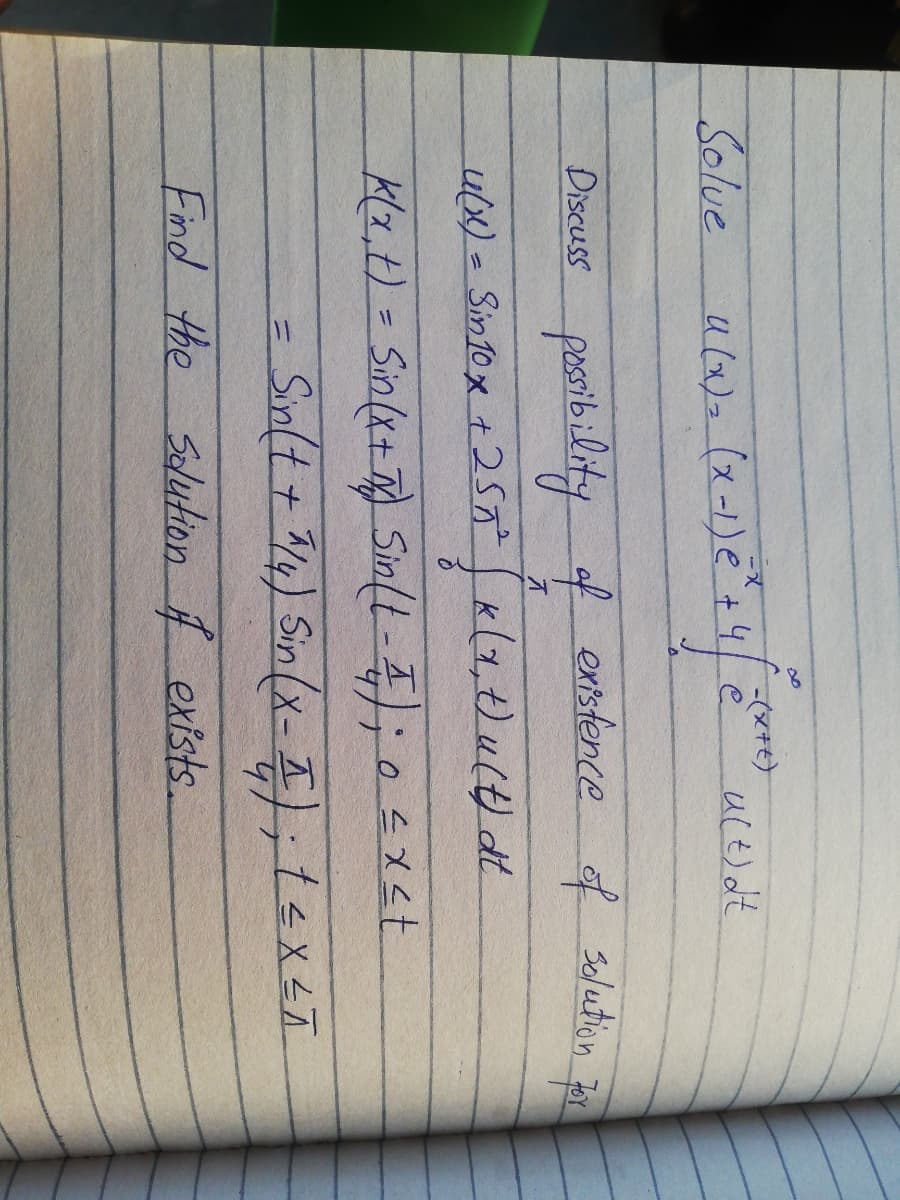 Solve u(x) = (x-1)e^{-x} + 4∫_0^∞ e^{-(x+t)} u(t) dt
Discuss possibility of existence of solution for
u(x) = Sin10x + 25π² ∫_0^π K(x,t) u(t) dt
K(x,t) = Sin(x+π/4) Sin(t-π/4); 0 ≤ x ≤ t
= Sin(t+π/4) Sin(x-π/4); t ≤ x ≤ π
Find the solution if exists.